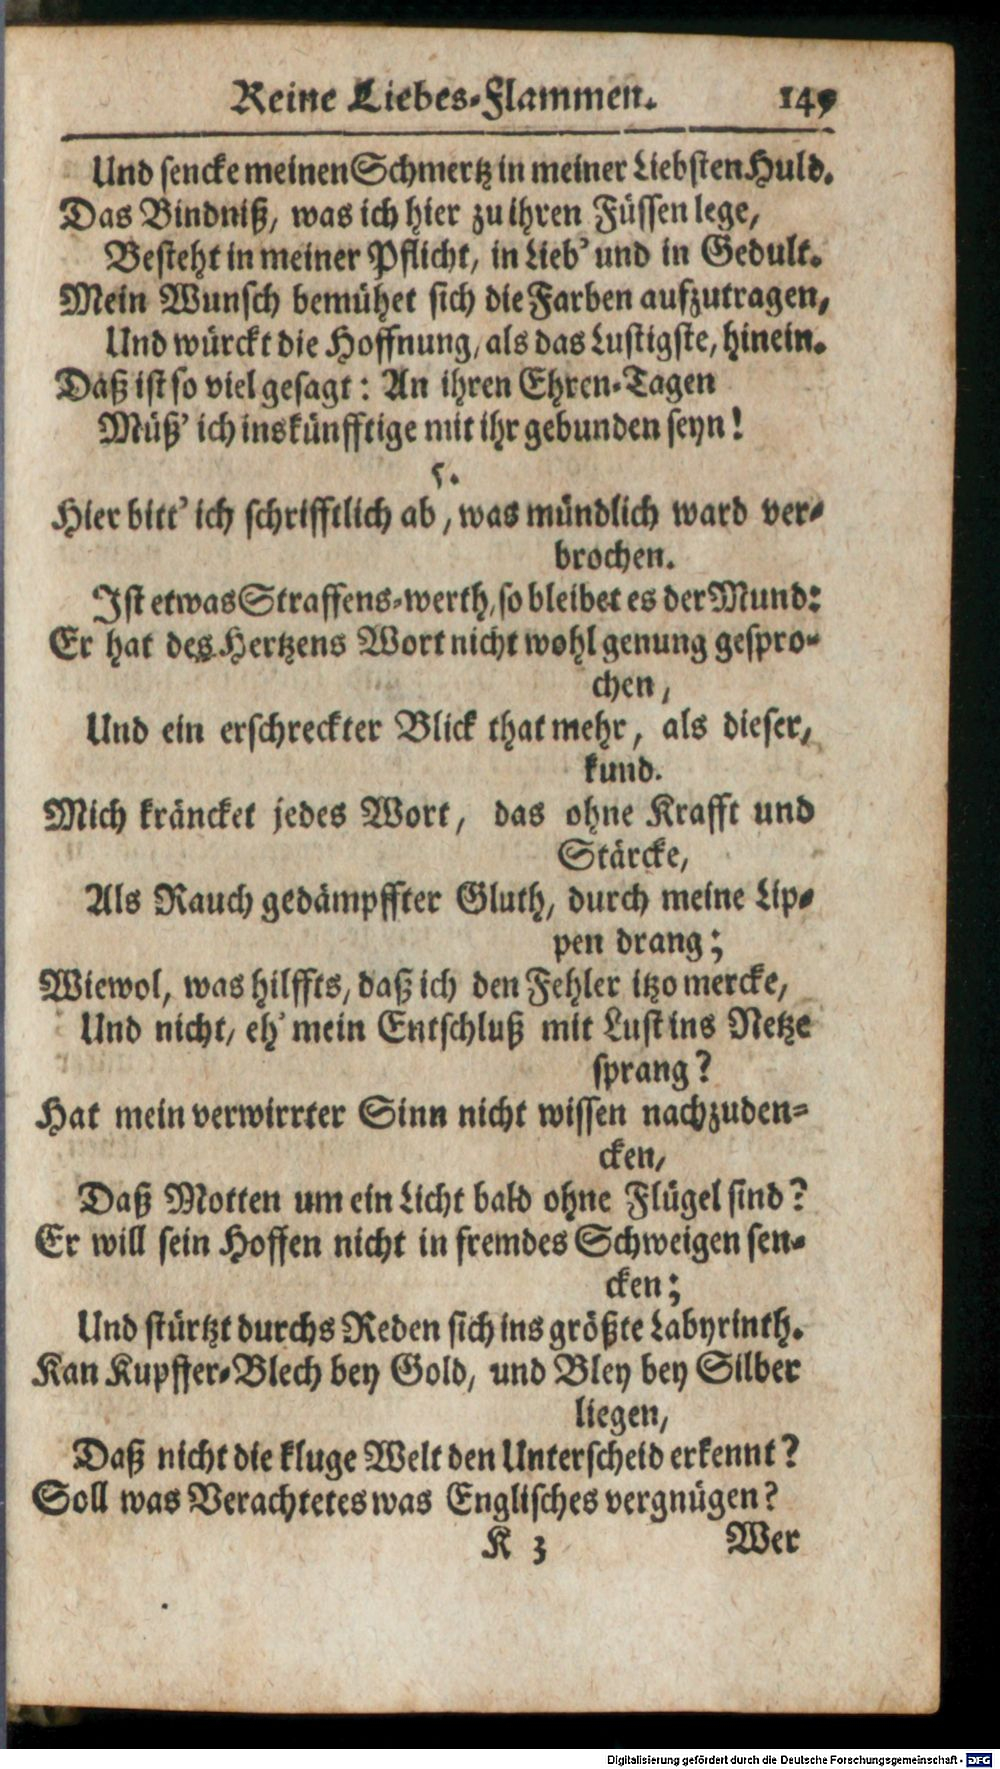 Reine Liebes-Flammen. 149
Und sencke meinen Schmertz in meiner Liebsten Huld.
Das Bindniß, was ich hier zu ihren Füssen lege,
Besteht in meiner Pflicht, in Lieb' und in Gedult.
Mein Wunsch bemühet sich die Farben aufzutragen,
Und würckt die Hoffnung, als das Lustigste, hinein.
Daß ist so viel gesagt: An ihren Ehren-Tagen
Müß' ich inskünfftige mit ihr gebunden seyn!
5.
Hier bitt' ich schrifftlich ab, was mündlich ward ver-
brochen.
Ist etwas Straffens-werth, so bleibet es der Mund:
Er hat des Hertzens Wort nicht wohl genung gespro-
chen,
Und ein erschreckter Blick that mehr, als dieser,
kund.
Mich kräncket jedes Wort, das ohne Krafft und
Stärcke,
Als Rauch gedämpffter Gluth, durch meine Lip-
pen drang;
Wiewol, was hilffts, daß ich den Fehler itzo mercke,
Und nicht, eh' mein Entschluß mit Lust ins Netze
sprang?
Hat mein verwirrter Sinn nicht wissen nachzuden-
cken,
Daß Motten um ein Licht bald ohne Flügel sind?
Er will sein Hoffen nicht in fremdes Schweigen sen-
cken;
Und stürtzt durchs Reden sich ins größte Labyrinth.
Kan Kupffer-Blech bey Gold, und Bley bey Silber
liegen,
Daß nicht die kluge Welt den Unterscheid erkennt?
Soll was Verachtetes was Englisches vergnügen?
K 3 Wer
Digitalisierung gefördert durch die Deutsche Forschungsgemeinschaft - DFG